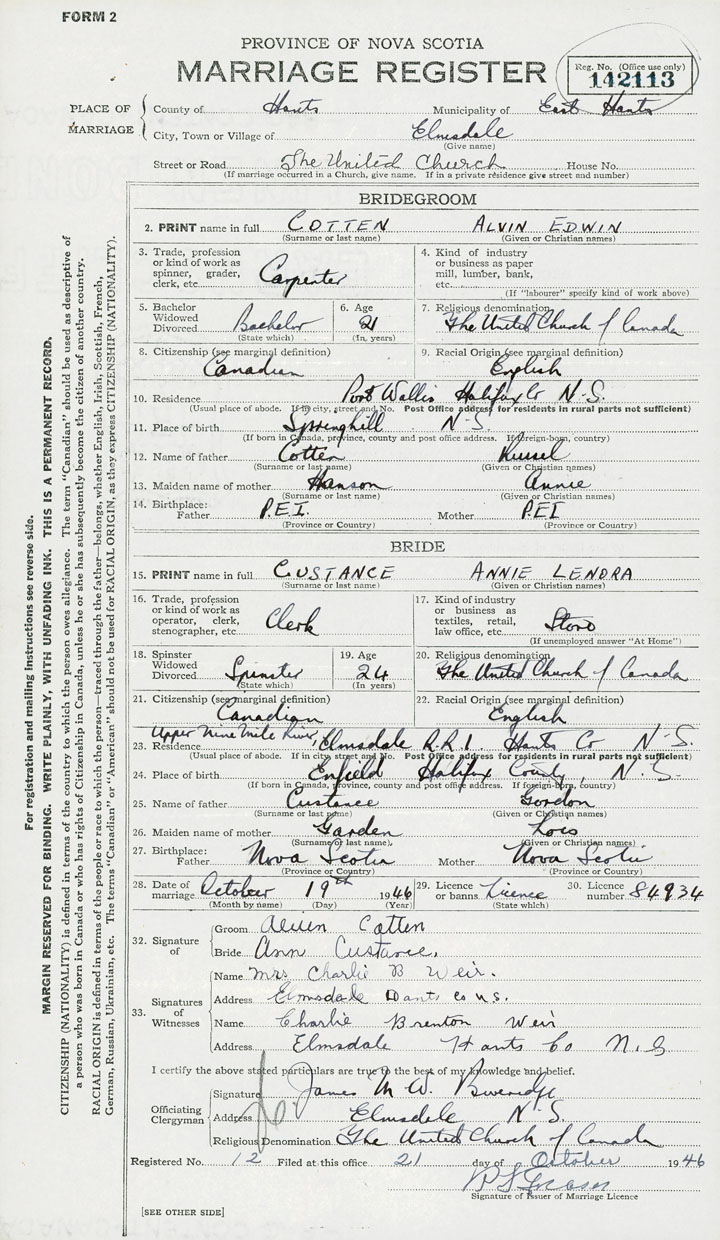 FORM 2
PROVINCE OF NOVA SCOTIA
MARRIAGE REGISTER
Reg. No. (Office use only)
142113
PLACE OF MARRIAGE
County of Hants Municipality of East Hants
City, Town or Village of Elmsdale
(Give name)
Street or Road The United Church House No.
(If marriage occurred in a Church, give name. If in a private residence give street and number)
BRIDEGROOM
2. PRINT name in full COTTEN ALVIN EDWIN
(Surname or last name) (Given or Christian names)
3. Trade, profession or kind of work as spinner, grader, clerk, etc. Carpenter
4. Kind of industry or business as paper mill, lumber, bank, etc.
(If "labourer" specify kind of work above)
5. Bachelor Widowed Divorced Bachelor (State which)
6. Age 21 (In years)
7. Religious denomination The United Church of Canada
8. Citizenship (see marginal definition) Canadian
9. Racial Origin (see marginal definition) English
10. Residence Port Wallis Halifax Co N-S.
(Usual place of abode. If in city, street and No. Post Office address for residents in rural parts not sufficient)
11. Place of birth Springhill N-S.
(If born in Canada, province, county and post office address. If foreign-born, country)
12. Name of father Cotten Russel
(Surname or last name) (Given or Christian names)
13. Maiden name of mother Hanson Annie
(Surname or last name) (Given or Christian names)
14. Birthplace: Father P.E.I. Mother P.E.I
(Province or Country) (Province or Country)
BRIDE
15. PRINT name in full CUSTANCE ANNIE LENORA
(Surname or last name) (Given or Christian names)
16. Trade, profession or kind of work as operator, clerk, stenographer, etc. Clerk
17. Kind of industry or business as textiles, retail, law office, etc. Store
(If unemployed answer "At Home")
18. Spinster Widowed Divorced Spinster (State which)
19. Age 24 (In years)
20. Religious denomination The United Church of Canada
21. Citizenship (see marginal definition) Canadian
22. Racial Origin (see marginal definition) English
Upper Nine Mile River,
23. Residence Elmsdale R.R.1. Hants Co N-S.
(Usual place of abode. If in city, street and No. Post Office address for residents in rural parts not sufficient)
24. Place of birth Enfield Halifax County, N-S.
(If born in Canada, province, county and post office address. If foreign-born, country)
25. Name of father Custance Gordon
(Surname or last name) (Given or Christian names)
26. Maiden name of mother Garden Lois
(Surname or last name) (Given or Christian names)
27. Birthplace: Father Nova Scotia Mother Nova Scotia
(Province or Country) (Province or Country)
28. Date of marriage October 19th 1946
(Month by name) (Day) (Year)
29. Licence or banns Licence (State which)
30. Licence number 84934
32. Signature of
Groom Cotten
Bride Ann Custance.
33. Signatures of Witnesses
Name Mrs Charlie B Weir.
Address Elmsdale Hants co n.s.
Name Charlie Brenton Weir
Address Elmsdale Hants Co N.S
I certify the above stated particulars are true to the best of my knowledge and belief.
Officiating Clergyman
Signature James M. W. Beveridge
Address Elmsdale N.S.
Religious Denomination The United Church of Canada
Registered No. 12 Filed at this office 21 day of October 1946
Fraser
Signature of Issuer of Marriage Licence
[SEE OTHER SIDE]
For registration and mailing instructions see reverse side.
MARGIN RESERVED FOR BINDING. WRITE PLAINLY, WITH UNFADING INK. THIS IS A PERMANENT RECORD.
CITIZENSHIP (NATIONALITY) is defined in terms of the country to which the person owes allegiance. The term "Canadian" should be used as descriptive of
a person who was born in Canada or who has rights of Citizenship in Canada, unless he or she has subsequently become the citizen of another country.
RACIAL ORIGIN is defined in terms of the people or race to which the person—traced through the father—belongs, whether English, Irish, Scottish, French,
German, Russian, Ukrainian, etc. The terms "Canadian" or "American" should not be used for RACIAL ORIGIN, as they express CITIZENSHIP (NATIONALITY).